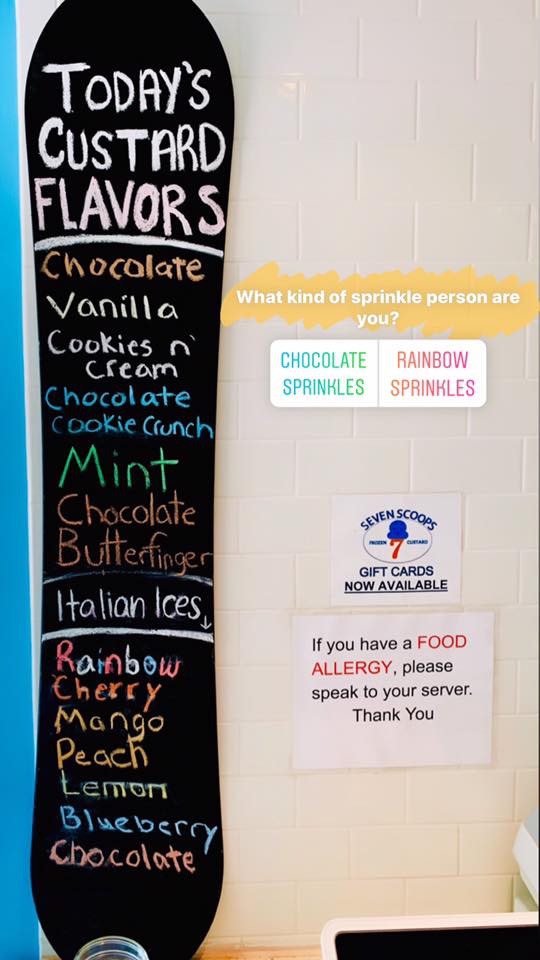 TODAY'S
CUSTARD
FLAVORS
Chocolate
Vanilla
Cookies n'
Cream
Chocolate
Cookie Crunch
Mint
Chocolate
Butterfinger
Italian Ices
Rainbow
Cherry
Mango
Peach
Lemon
Blueberry
Chocolate
What kind of sprinkle person are
you?
CHOCOLATE
SPRINKLES
RAINBOW
SPRINKLES
SEVEN SCOOPS
FROZEN 7 CUSTARD
GIFT CARDS
NOW AVAILABLE
If you have a FOOD
ALLERGY, please
speak to your server.
Thank You